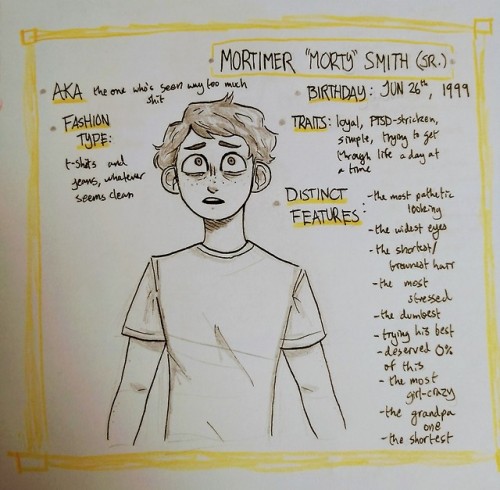 MORTIMER "MORTY" SMITH (JR.)
AKA the one who's seen way too much
shit
FASHION
TYPE:
t-shits and
jeans, whatever
seems clean
BIRTHDAY: JUN 26th, 1999
TRAITS: loyal, PTSD-stricken,
simple, trying to get
through life a day at
a time
DISTINCT
FEATURES:
-the most pathetic
looking
-the widest eyes
-the shortest/
brownest hair
-the most
stressed
-the dumbest
-trying his best
-deserved 0%
of this
-the most
girl-crazy
-the grandpa
one
-the shortest